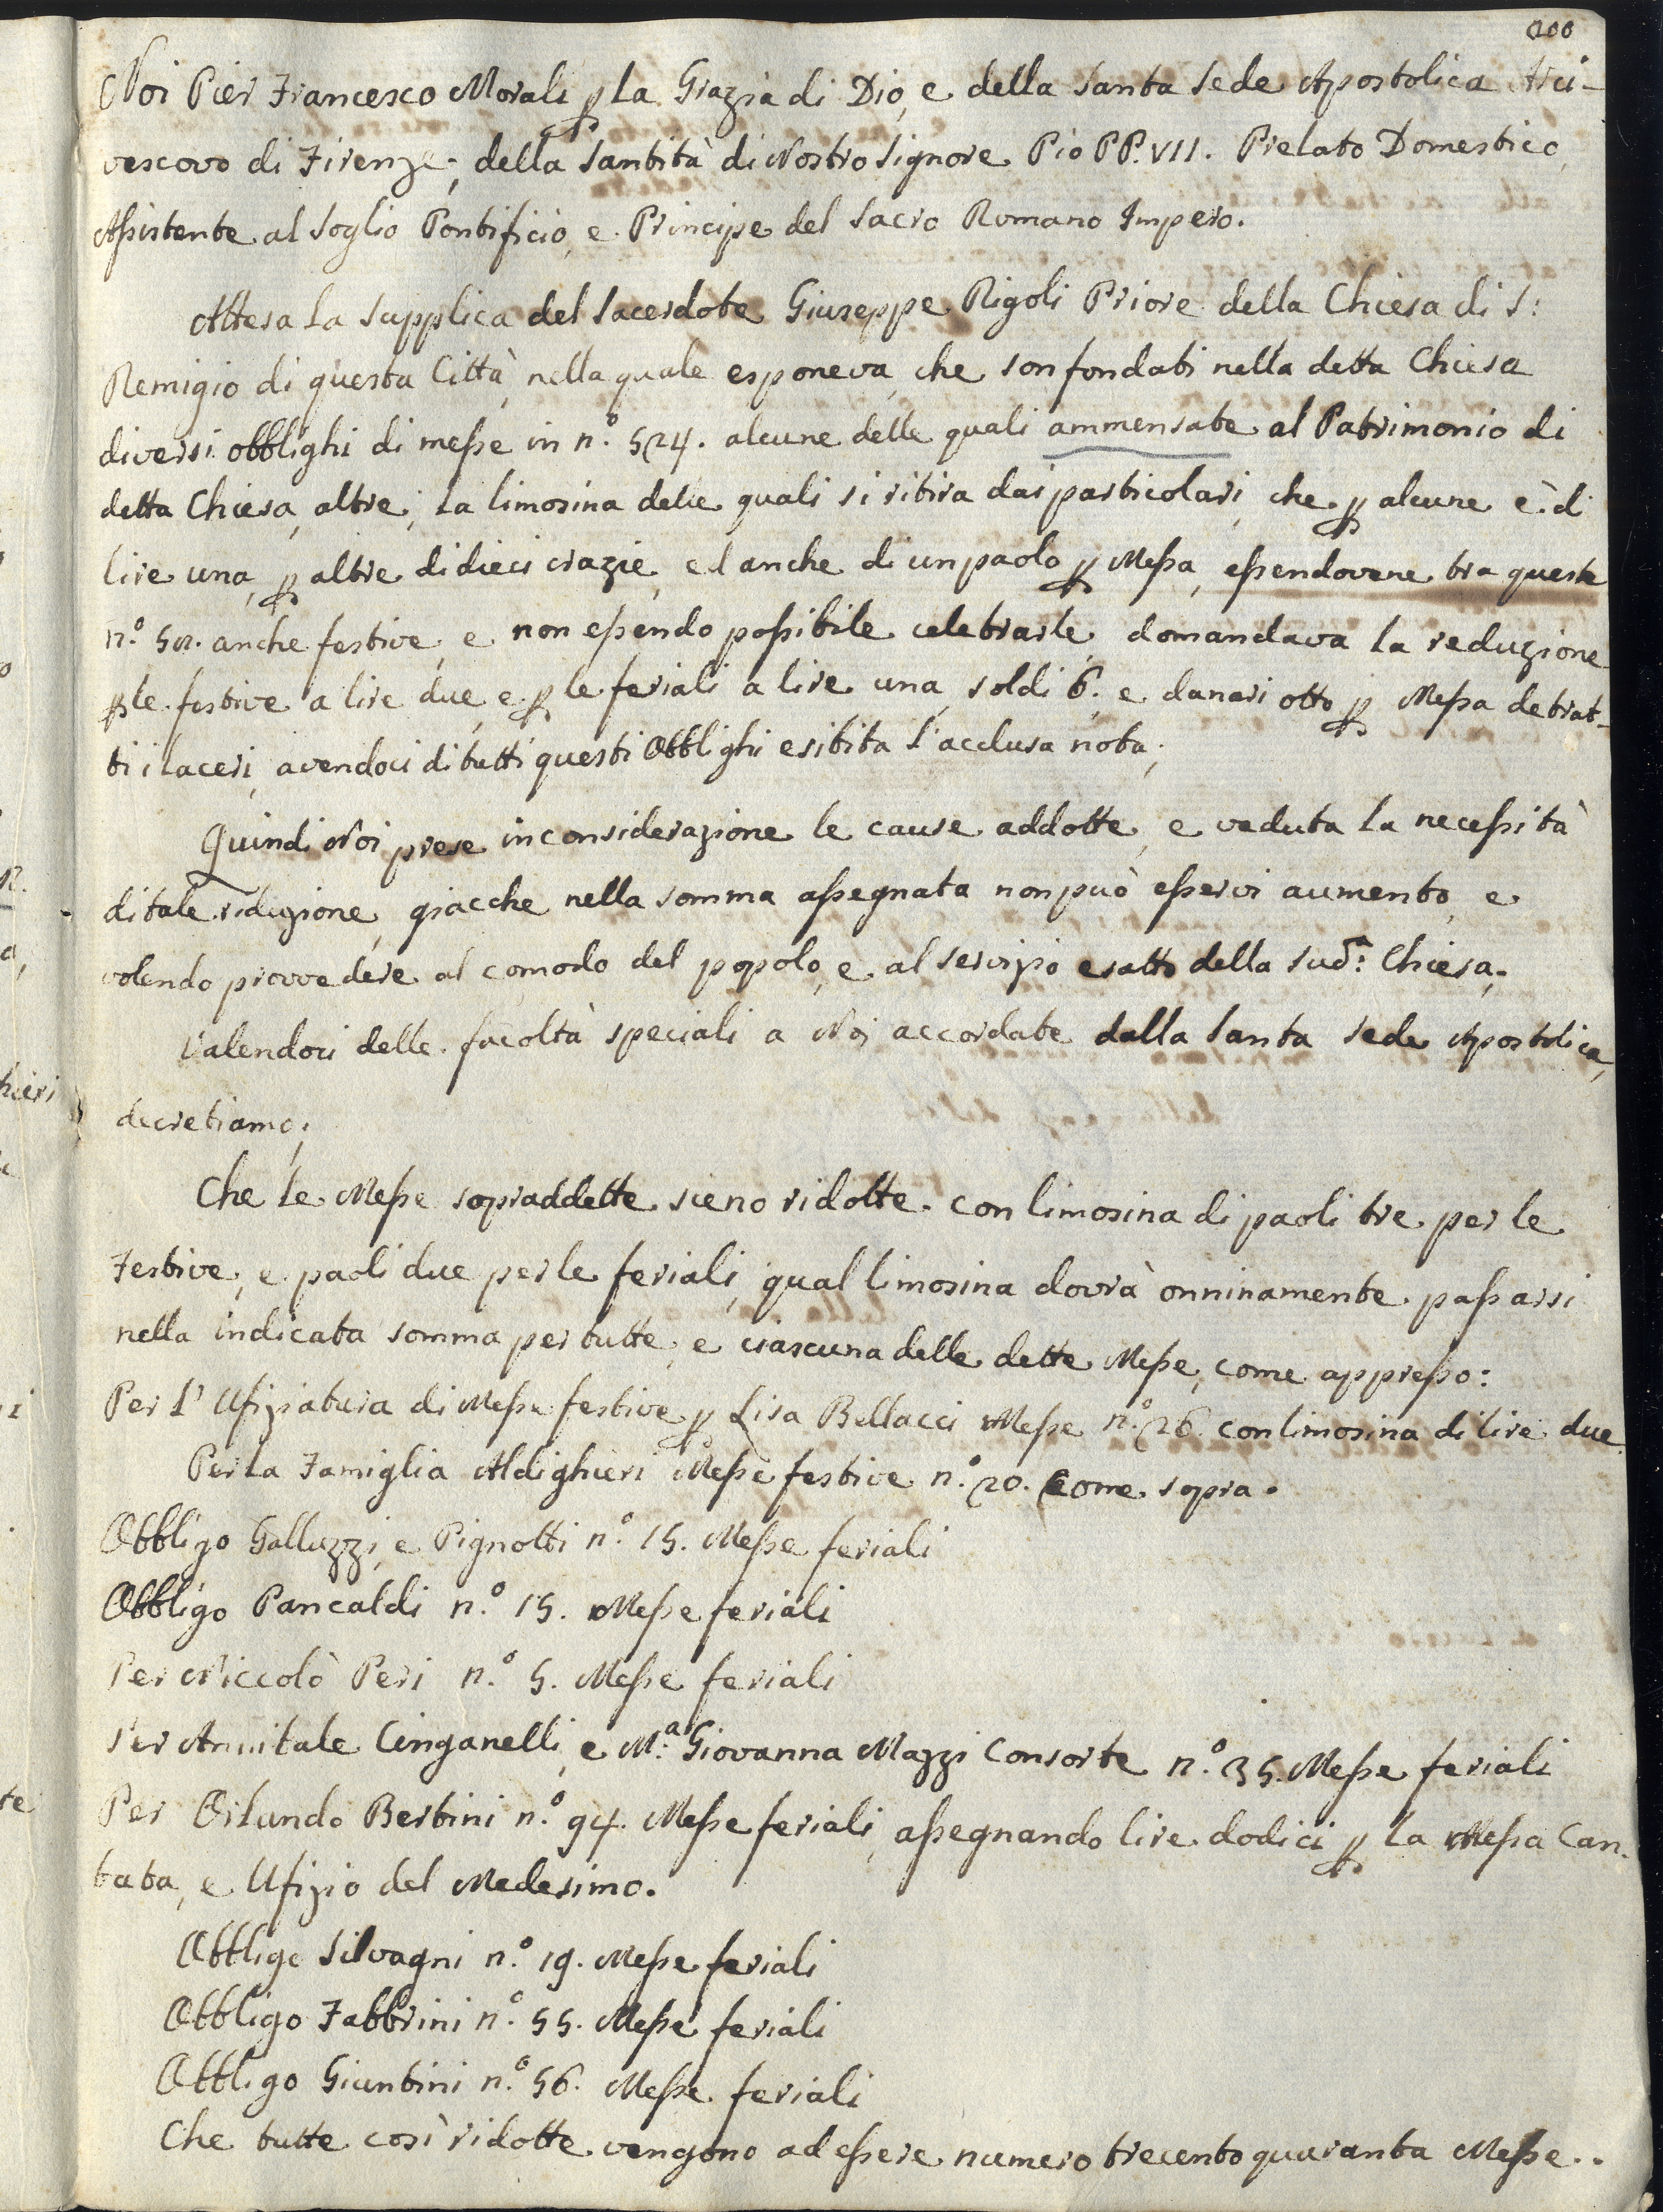 200
Noi Pier Francesco Morali ꝑ La Grazia di Dio, e della Santa Sede Apostolica Arci-
vescovo di Firenze; della Santità di Nostro Signore Pio PP. VII. Prelato Domestico,
Assistente al Soglio Pontificio, e Principe del Sacro Romano Impero.
Attesa La Supplica del Sacerdote Giuseppe Rigoli Priore della Chiesa di S:
Remigio di questa Città, nella quale esponeva, che son fondati nella detta Chiesa
diversi obblighi di messe in n.° 524. alcune delle quali ammensate al Patrimonio di
detta Chiesa, altre, La limosina delle quali si ritira dai particolari, che ꝑ alcune è di
lire una, ꝑ altre di dieci crazie, ed anche di un paolo ꝑ Messa, essendovene tra queste
n.° 52. anche festive, e non essendo possibile celebrarle, domandava la reduzione
ꝑ le festive a lire due, e ꝑ le feriali a lire una, soldi 6. e danari otto ꝑ Messa detrat-
ti i laceri, avendoci di tutti questi Obblighi esibita l'acclusa nota;
Quindi Noi prese in considerazione le cause addotte, e veduta la necessità
di tale riduzione, giacche nella somma assegnata non può esservi aumento, e
volendo provvedere al comodo del popolo, e al servizio esatto della sud.ª Chiesa;
Valendoci delle facoltà speciali a Noi accordate dalla Santa Sede Apostolica,
decretiamo;
Che Le Messe sopraddette sieno ridotte con limosina di paoli tre per le
Festive, e paoli due per le feriali, qual limosina dovrà onninamente passarsi
nella indicata somma per tutte, e ciascuna delle dette Messe, come appresso:
Per L' Ufiziatura di Messe festive ꝑ Lisa Bellacci Messe n.° 26 con limosina di lire due.
Per la Famiglia Aldighieri Messe festive n.° 20. Come sopra.
Obbligo Galluzzi, e Pignotti n.° 15. Messe feriali
Obbligo Pancaldi n.° 15. Messe feriali
Per Niccolò Peri n.° 5. Messe feriali
Per Annitale Cinganelli, e M.ª Giovanna Mazzi Consorte n.° 35. Messe feriali
Per Orlando Bertini n.° 94. Messe feriali, assegnando lire dodici ꝑ La Messa Can-
tata, e Ufizio del Medesimo.
Obbligo Silvagni n.° 19. Messe feriali
Obbligo Fabbrini n.° 55. Messe feriali
Obbligo Giuntini n.° 56. Messe feriali
Che tutte così ridotte vengono ad essere numero trecento quaranta Messe..